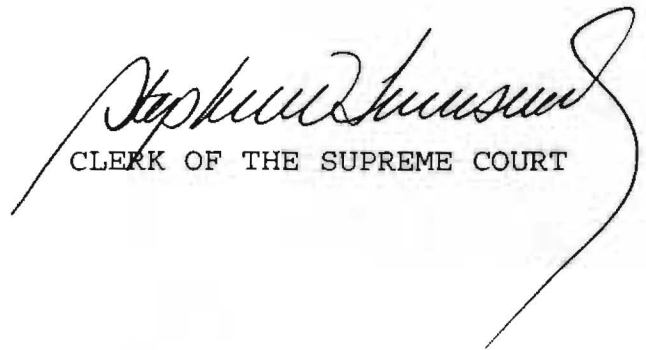 CLERK OF THE SUPREME COURT